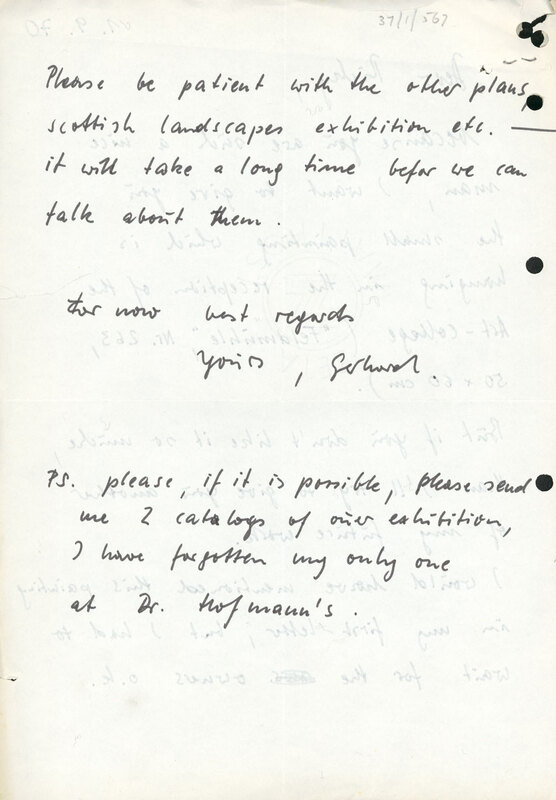 37/1/567
Please be patient with the other plans,
scottish landscapes exhibition etc. —
it will take a long time befor we can
talk about them.
For now best regards
Yours, Gerhard.
PS. please, if it is possible, please send
me 2 catalogs of ouer exhibition,
I have forgotten my only one
at Dr. Hofmann's.